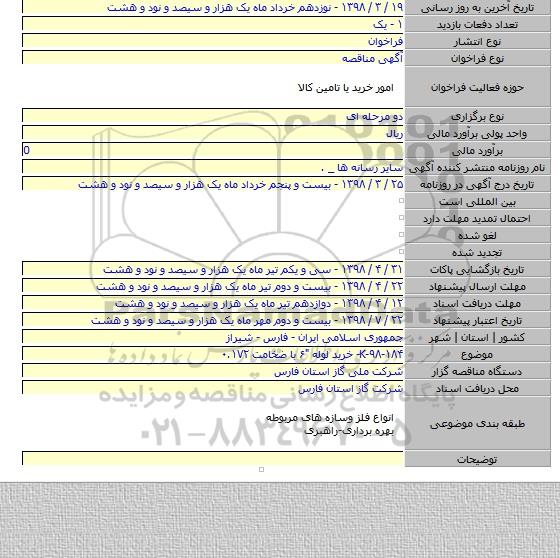 تاریخ آخرین به روز رسانی ۱۹ / ۳ / ۱۳۹۸ - نوزدهم خرداد ماه یک هزار و سیصد و نود و هشت
تعداد دفعات بازدید ۱ - یک
نوع انتشار فراخوان
نوع فراخوان آگهی مناقصه
حوزه فعالیت فراخوان امور خرید با تامین کالا
نوع برگزاری دو مرحله ای
واحد پولی برآورد مالی ریال
برآورد مالی 0
نام روزنامه منتشر کننده آگهی سایر رسانه ها _ .
تاریخ درج آگهی در روزنامه ۲۵ / ۳ / ۱۳۹۸ - بیست و پنجم خرداد ماه یک هزار و سیصد و نود و هشت
بین المللی است
احتمال تمدید مهلت دارد
لغو شده
تجدید شده
تاریخ بازگشایی پاکات ۳۱ / ۴ / ۱۳۹۸ - سی و یکم تیر ماه یک هزار و سیصد و نود و هشت
مهلت ارسال پیشنهاد ۲۲ / ۴ / ۱۳۹۸ - بیست و دوم تیر ماه یک هزار و سیصد و نود و هشت
مهلت دریافت اسناد ۱۲ / ۴ / ۱۳۹۸ - دوازدهم تیر ماه یک هزار و سیصد و نود و هشت
تاریخ اعتبار پیشنهاد ۲۲ / ۷ / ۱۳۹۸ - بیست و دوم مهر ماه یک هزار و سیصد و نود و هشت
کشور | استان | شهر جمهوری اسلامی ایران - فارس - شیراز
موضوع K-۹۸-۱۸۴- خرید لوله "۶ با ضخامت ۰.۱۷۲
دستگاه مناقصه گزار شرکت ملی گاز استان فارس
محل دریافت اسناد شرکت گاز استان فارس
طبقه بندی موضوعی انواع فلز وسازه های مربوطه
بهره برداری-راهبری
توضیحات
ParsNamadData
پایگاه اطلاع رسانی مناقصه و مزایده
۰۲۱-۸۸۳۴۹۶۷۰-۵